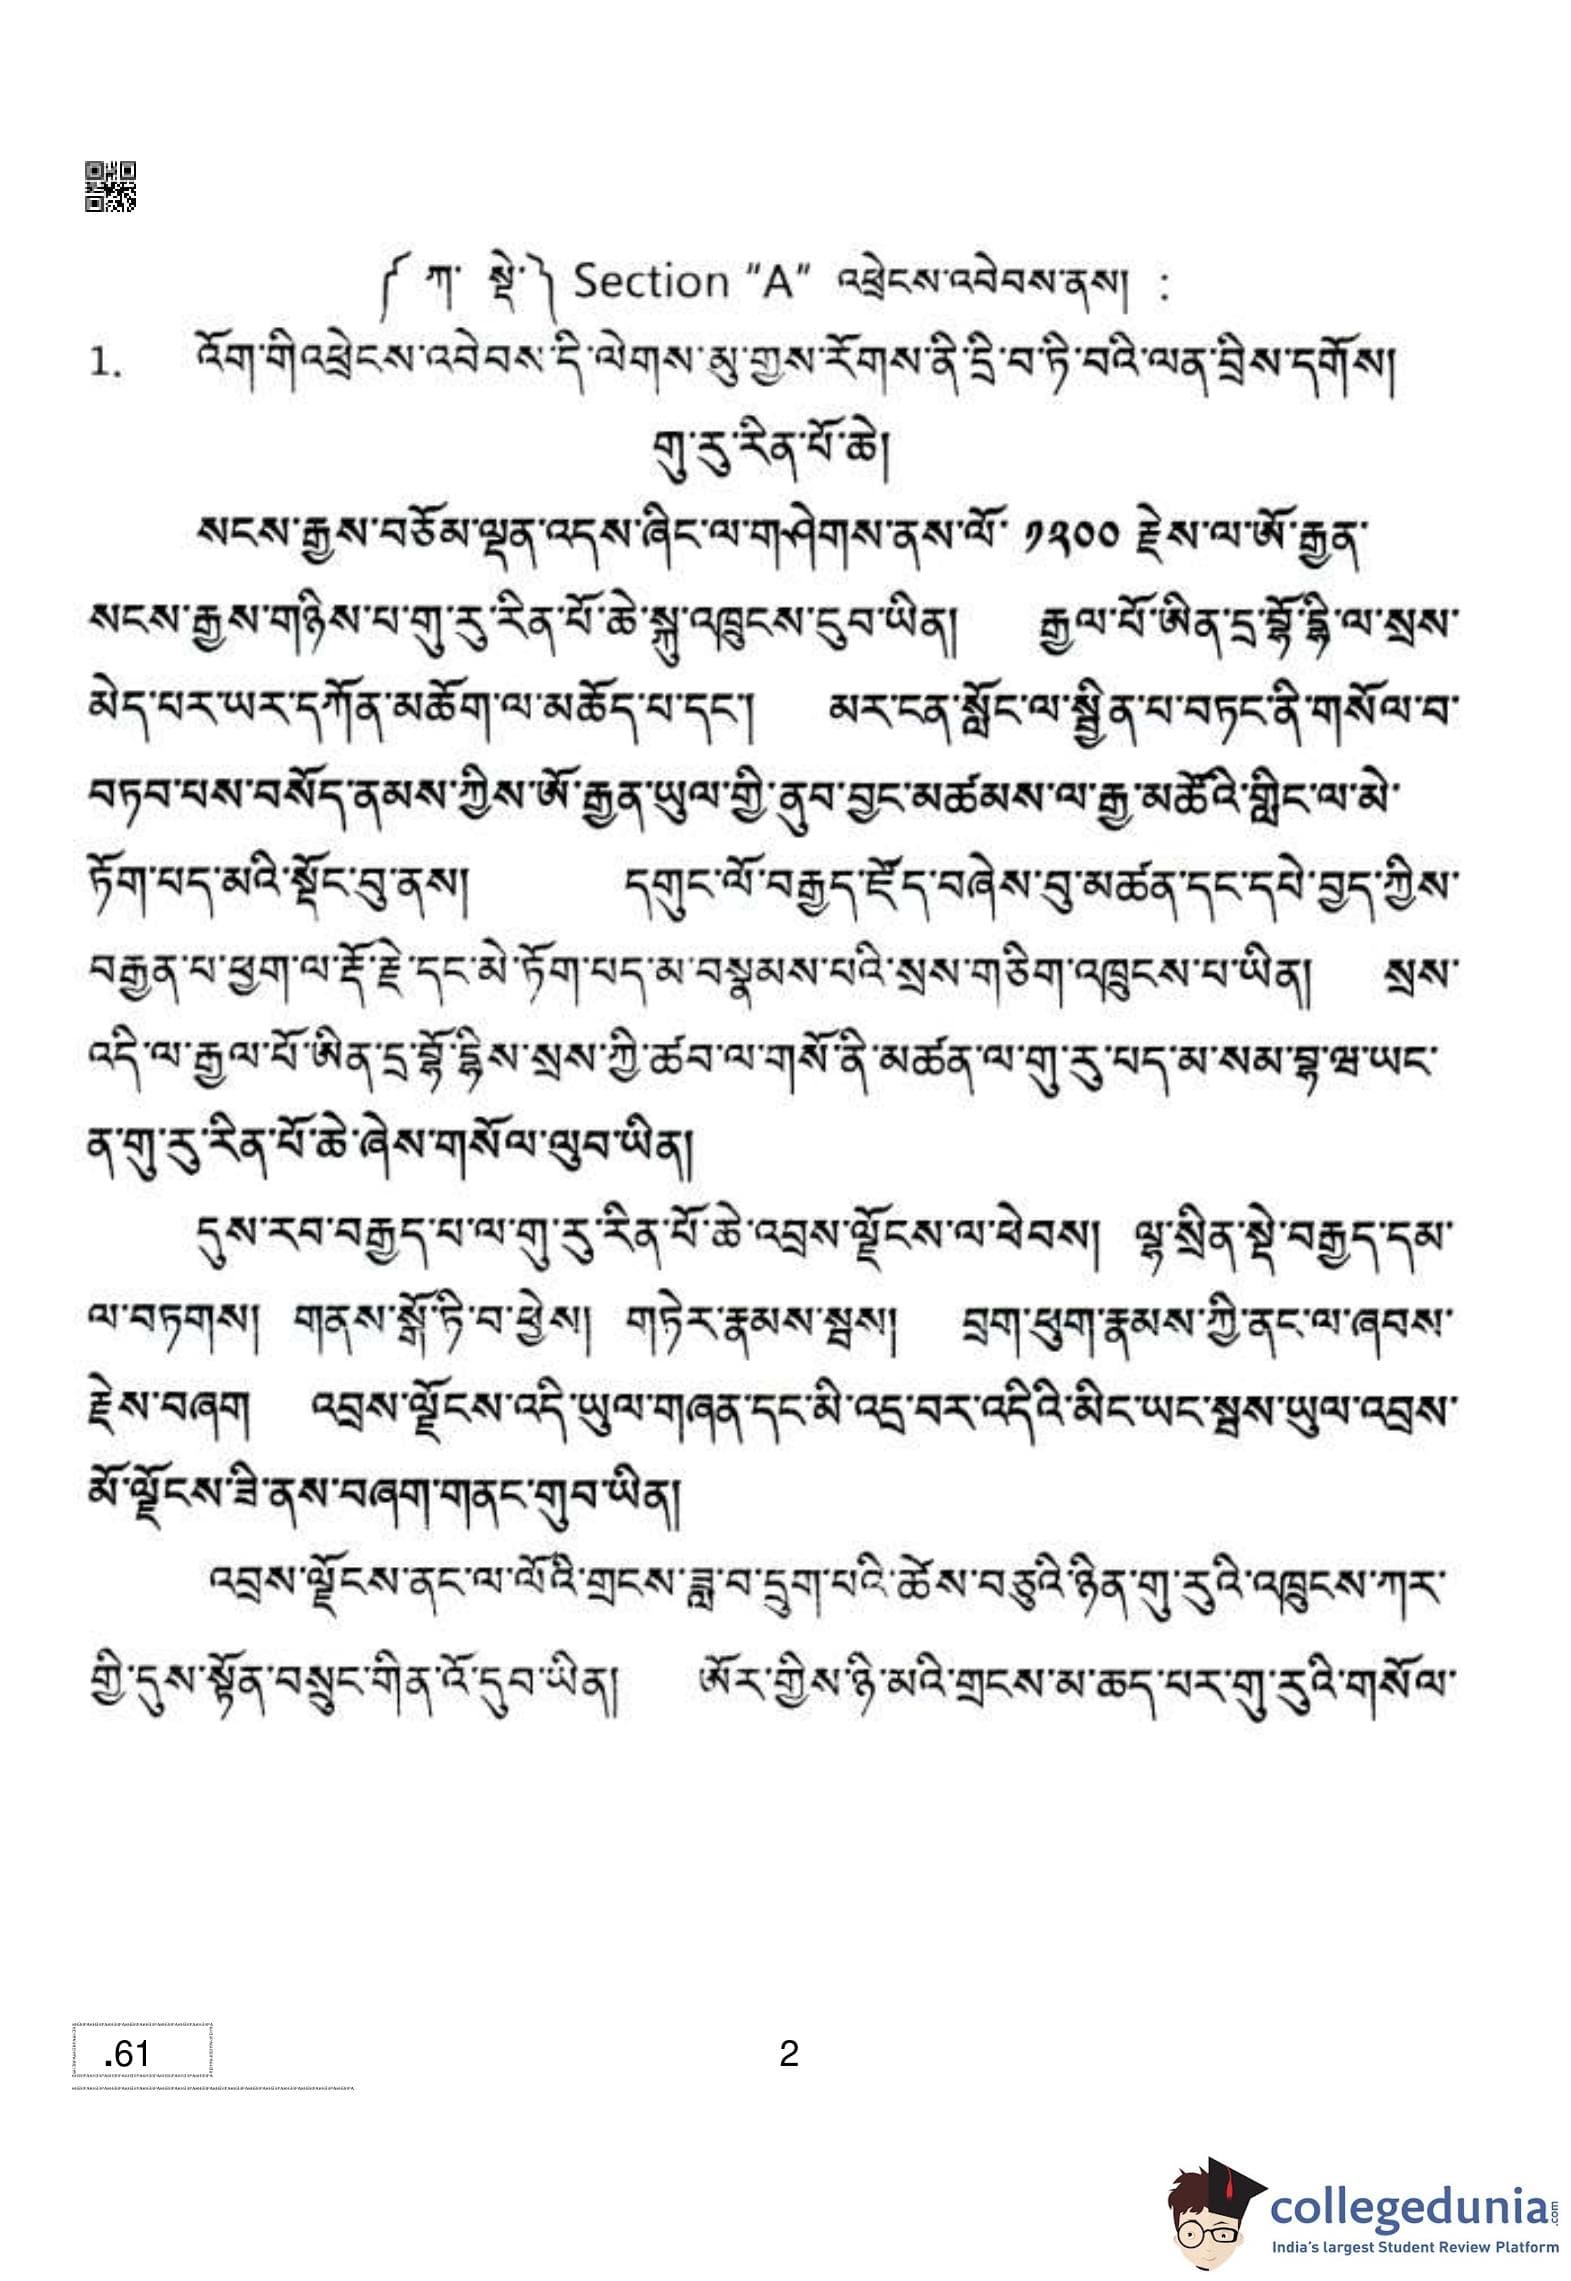 ༼ ཀ་ སྡེ་༽ Section "A" འཕྲེངས་འབེབས་ནས། :
1. འོག་གིའཕྲེངས་འབེབས་དི་ལེགས་མུ་གྱས་རོགས་ནི་དྲི་བ་ཏི་བའི་ལན་བྲིས་དགོས།
གུ་རུ་རིན་པོ་ཆེ།
སངས་རྒྱས་བཅོམ་ལྡན་འདས་ཞིང་ལ་གཤེགས་ནས་ལོ་ ༡༢༠༠ རྗེས་ལ་ཨོ་རྒྱན་
སངས་རྒྱས་གཉིས་པ་གུ་རུ་རིན་པོ་ཆེ་སྐུ་འཁྲུངས་དུབ་ཡིན། རྒྱལ་པོ་ཨིན་དྲ་བྷོ་དྷི་ལ་སྲས་
མེད་པར་ཡར་དཀོན་མཆོག་ལ་མཆོད་པ་དང་། མར་ངན་སློང་ལ་སྦྱིན་པ་བཏང་ནི་གསོལ་བ་
བཏབ་པས་བསོད་ནམས་ཀྱིས་ཨོ་རྒྱན་ཡུལ་གྱི་ནུབ་བྱང་མཚམས་ལ་རྒྱ་མཚོའི་གླིང་ལ་མེ་
ཏོག་པད་མའི་སྡོང་བུ་ནས། དགུང་ལོ་བརྒྱད་ཛོད་བཞེས་བུ་མཚན་དང་དཔེ་བྱད་ཀྱིས་
བརྒྱན་པ་ཕྱག་ལ་རྡོ་རྗེ་དང་མེ་ཏོག་པད་མ་བསྣམས་པའི་སྲས་གཅིག་འཁྲུངས་པ་ཡིན། སྲས་
འདི་ལ་རྒྱལ་པོ་ཨིན་དྲ་བྷོ་དྷིས་སྲས་ཀྱི་ཚབ་ལ་གསོ་ནི་མཚན་ལ་གུ་རུ་པད་མ་སམ་བྷ་ཝ་ཡང་
ན་གུ་རུ་རིན་པོ་ཆེ་ཞེས་གསོལ་ལུབ་ཡིན།
དུས་རབ་བརྒྱད་པ་ལ་གུ་རུ་རིན་པོ་ཆེ་འབྲས་ལྗོངས་ལ་ཕེབས། ལྷ་སྲིན་སྡེ་བརྒྱད་དམ་
ལ་བཏགས། གནས་སྒོ་ཏི་བ་ཕྱེས། གཏེར་རྣམས་སྦས། བྲག་ཕུག་རྣམས་ཀྱི་ནང་ལ་ཞབས་
རྗེས་བཞག འབྲས་ལྗོངས་འདི་ཡུལ་གཞན་དང་མི་འདྲ་བར་འདིའི་མིང་ཡང་སྦས་ཡུལ་འབྲས་
མོ་ལྗོངས་ཟི་ནས་བཞག་གནང་གུབ་ཡིན།
འབྲས་ལྗོངས་ནང་ལ་ལོའི་གྲངས་ཟླ་བ་དྲུག་པའི་ཚེས་བཅུའི་ཉིན་གུ་རུའི་འཁྲུངས་ཀར་
གྱི་དུས་སྟོན་བསྲུང་གིན་འོ་དུབ་ཡིན། ཨོར་གྱིས་ཉི་མའི་གྲངས་མ་ཆད་པར་གུ་རུའི་གསོལ་
.61
2
collegedunia.com
India's largest Student Review Platform